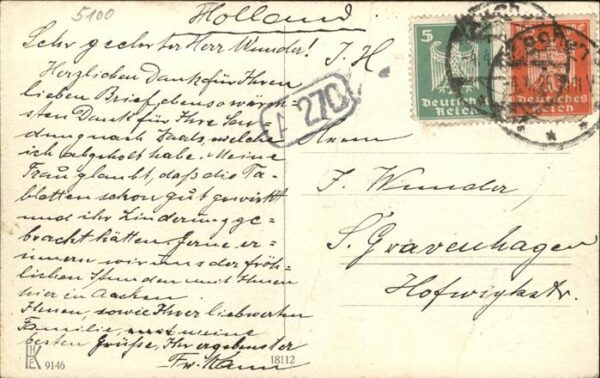 5100
Holland
Sehr geehrter Herr Wunder! I. H
Herzlichen Dank für Ihren
lieben Brief, ebenso wärm=
sten Dank für Ihre Sen=
dung nach Vaals, welche
ich abgeholt habe. Meine
Frau glaubt, daß die Ta=
bletten schon gut gewirkt
und ihr Linderung ge=
bracht hätten. Gerne er=
innern wir uns der fröh=
lichen Stunden mit Ihnen
hier in Aachen.
Ihnen, sowie Ihrer liebwerten
Familie, meine
besten Grüße, Ihr ergebenster
Fr. Kann
HKE 9146
18112
270
5
Deutsches
Reich
Deutsches
Reich
Herrn
F. Wunder,
S. Gravenhagen
Hofwigkstr.